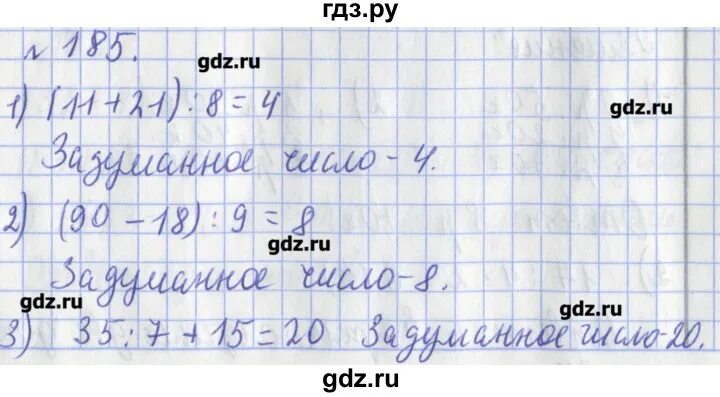 гдз.ру
№ 185.
gdz.ru
1) (11+21):8=4
gdz.ru
Задуманное число - 4.
2) (90-18):9=8
gdz.ru
Задуманное число - 8.
gdz.ru
gdz.ru
3) 35:7+15=20 Задуманное число - 20.
gdz.ru